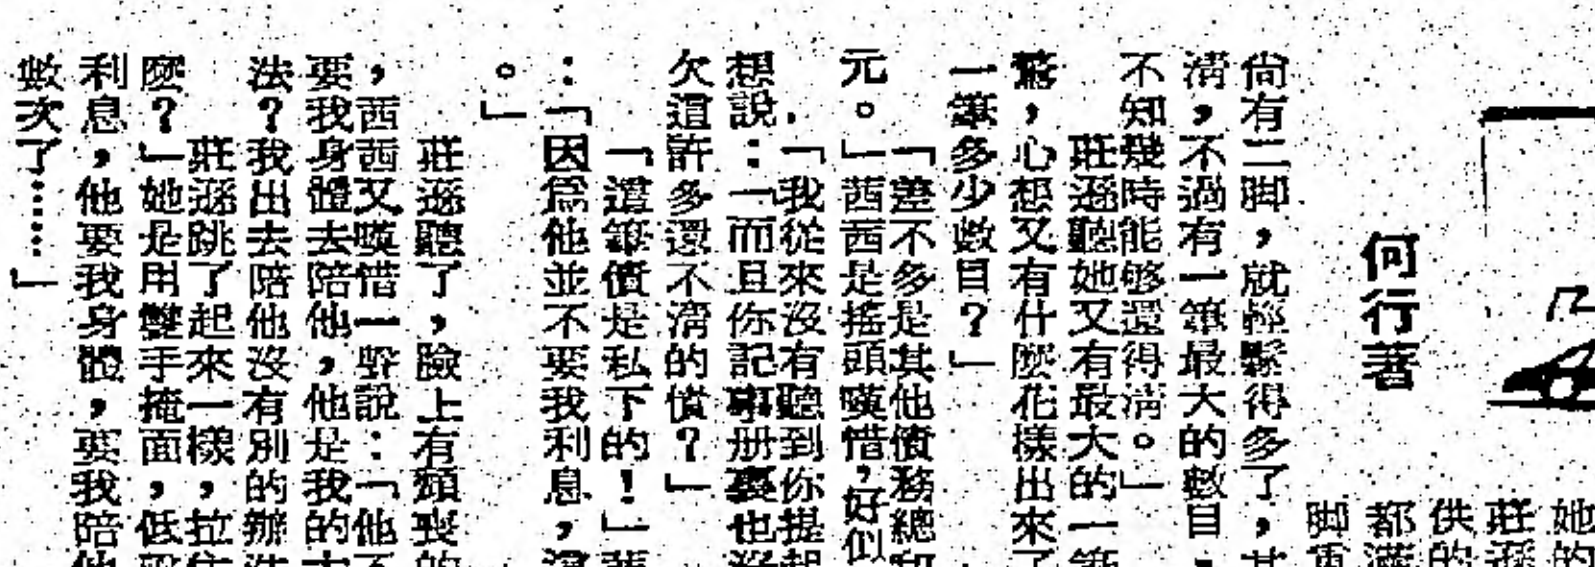 她的
莊遜
供的
都滿
脚
何行著
尙有二脚，就輕鬆得多了，其
清，不過有一筆最大的數目，
不知幾時能够還得清。」
莊遜聽她又有最大的一筆
驚，心想又有什麽花樣出來了
一筆多少數目？」
「差不多是其他債務總和
元。」茜茜是搖頭嘆惜，好似
「我從來沒有聽到你提起
想說：「而且你記事册裏也沒
欠這許多還不清的債？」
「這筆債是私下的！」茜
：「因爲他並不要我利息，還
。」
莊遜聽了，臉上有頹喪的
，茜茜又嘆惜一聲說：「他不
要我身體去陪他，他是我的大
法？我出去陪他沒有別的辦法
莊遜跳了起來一樣，拉住
麽？」她是用雙手掩面，低聲
利息，他要我身體，要我陪他
數次了……」